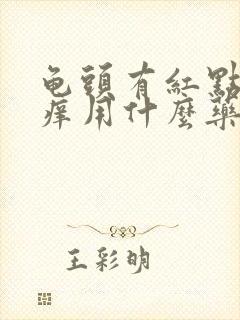 龟頭有紅點
癢用什麼藥
王彩明